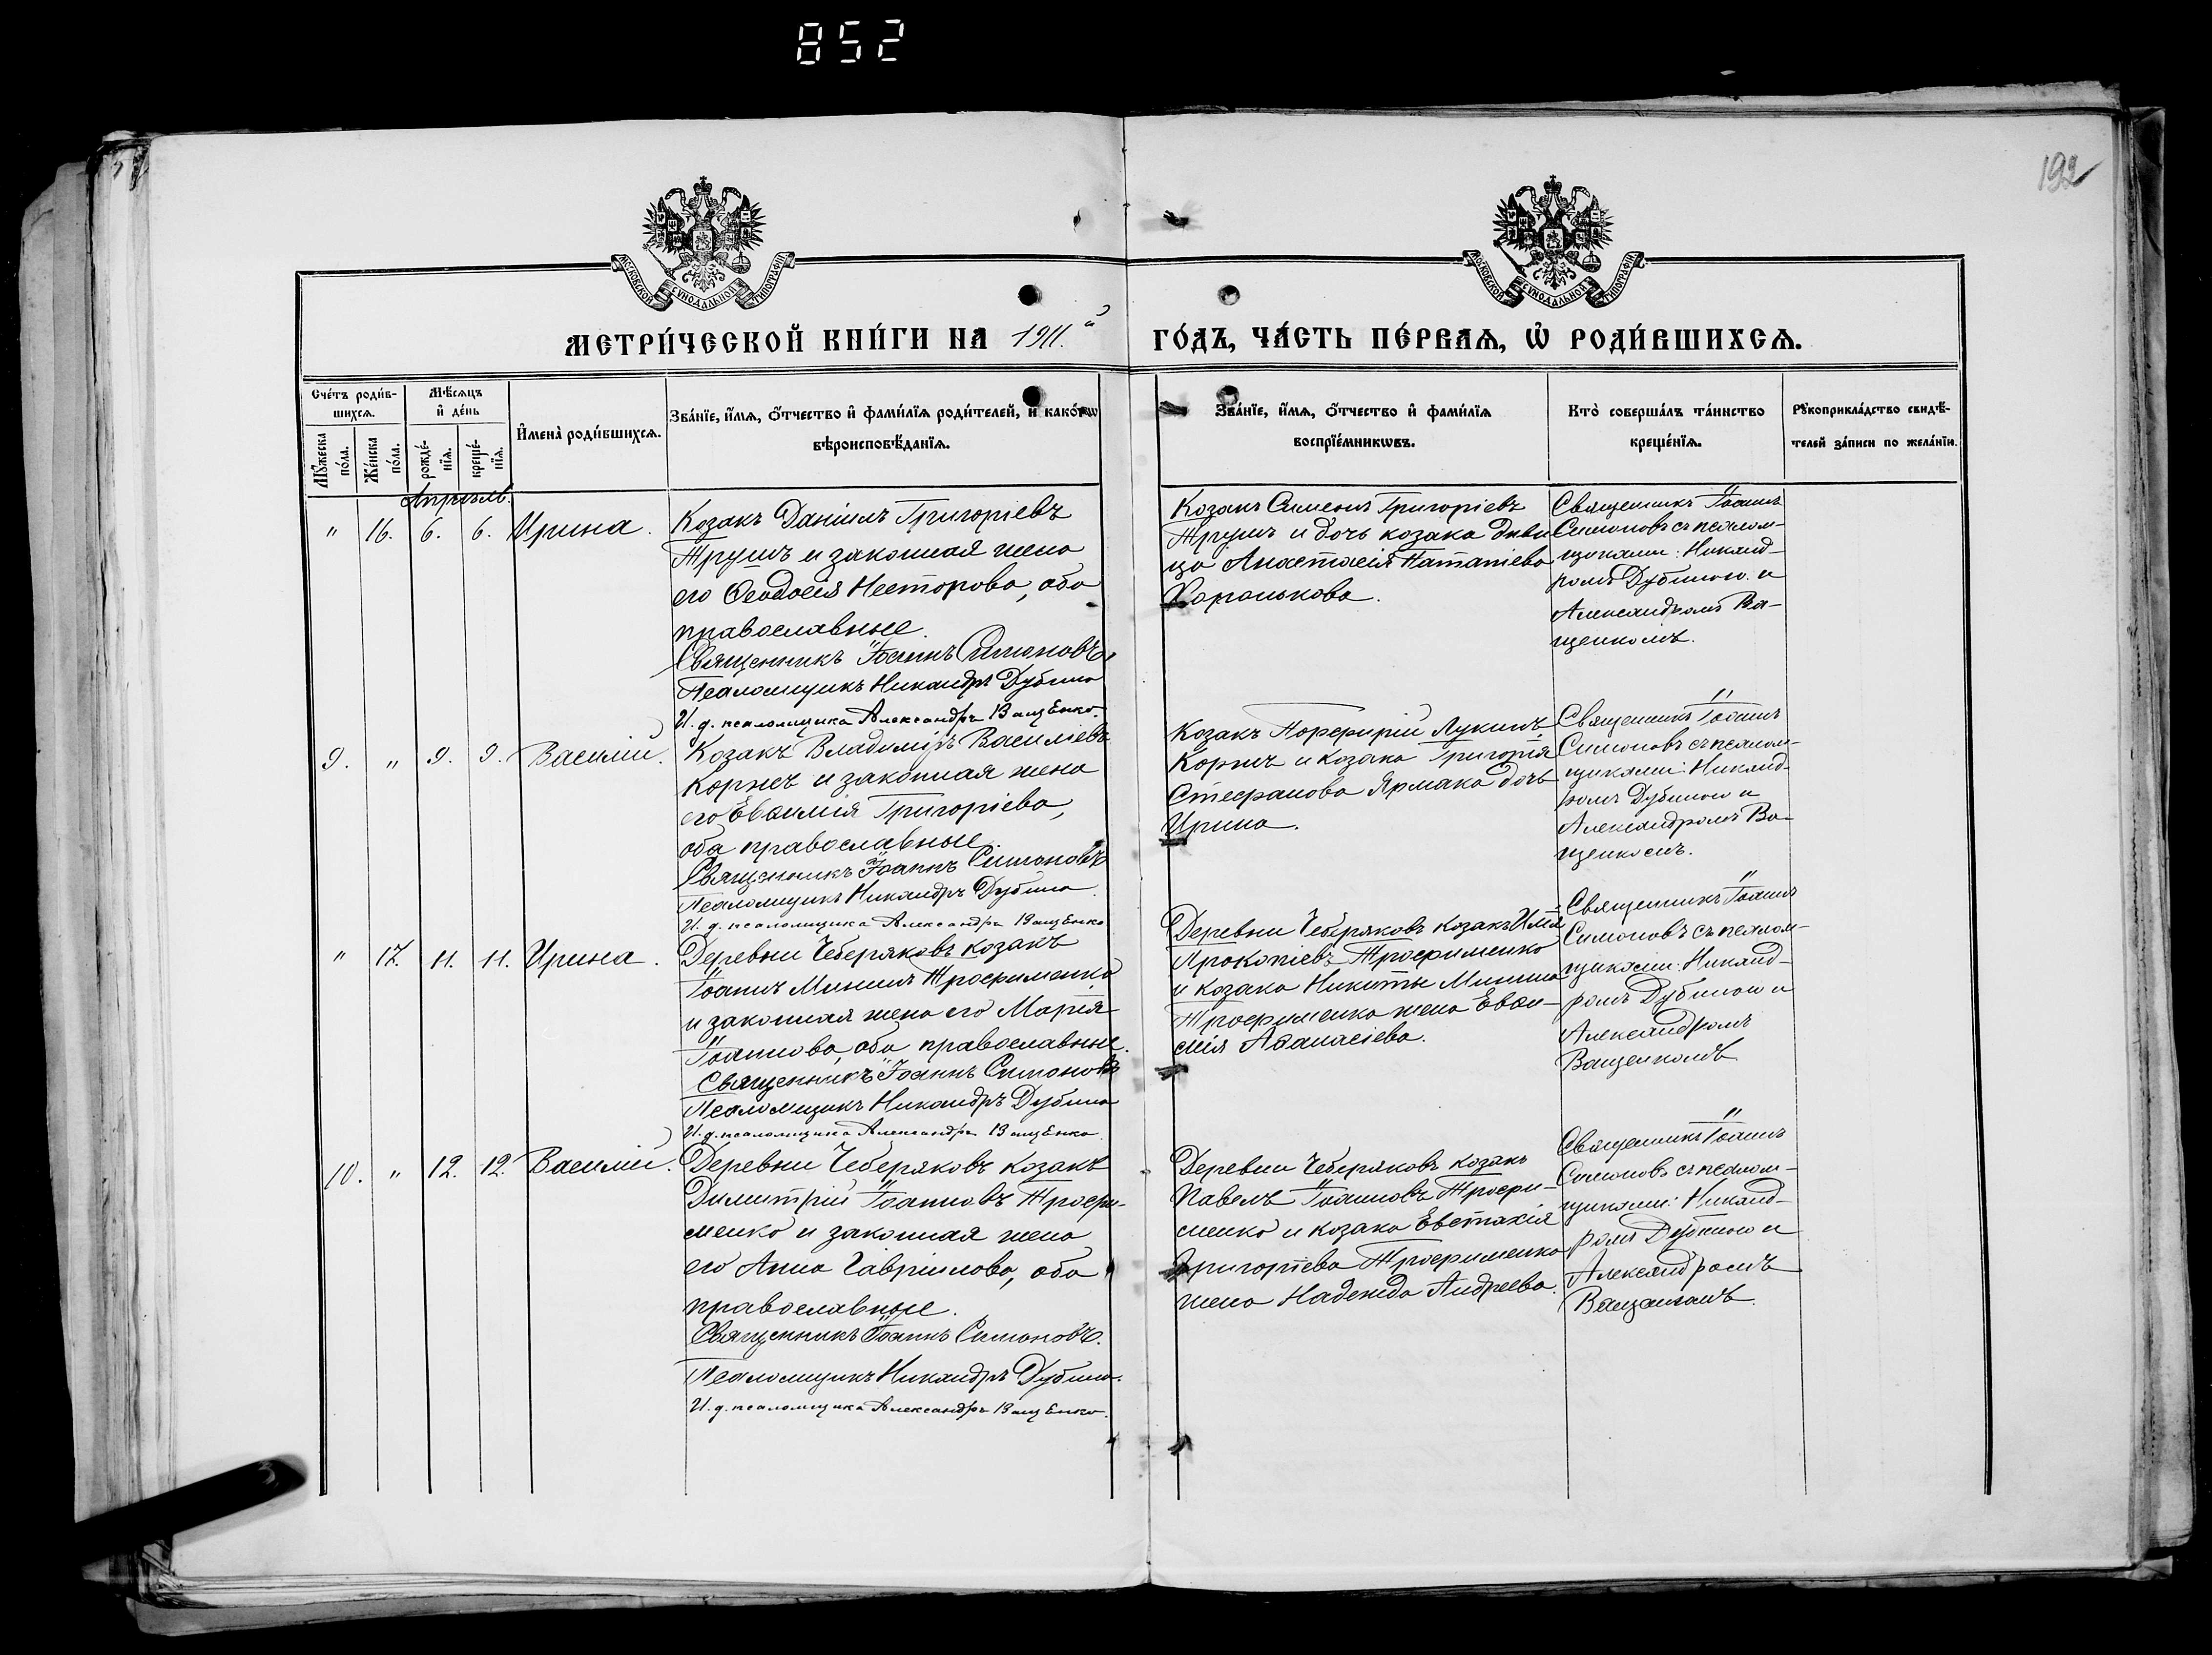 852
192
МОСКОВСКОЙ СѴНОДАЛЬНОЙ ТИПОГРАФІИ
МОСКОВСКОЙ СѴНОДАЛЬНОЙ ТИПОГРАФІИ
МЕТРИ́ЧЕСКОЙ КНИ́ГИ НА 1911.й ГО́ДЪ, ЧА́СТЬ ПЕ́РВАѦ, Ѡ҆ РОДИ́ВШИХСѦ.
Сче́тъ роди́в-
шихсѧ.
Мꙋ́жеска
по́ла.
Же́нска
по́ла.
Мѣ́сѧцъ
и҆ де́нь
рожде́-
нїѧ.
креще́-
нїѧ.
И҆мена̀ роди́вшихсѧ.
Зва́нїе, и҆́мѧ, ѻ҆́тчество и҆ фами́лїѧ роди́телей, и҆ како́гѡ
вѣроисповѣ́данїѧ.
Зва́нїе, и҆́мѧ, ѻ҆́тчество и҆ фами́лїѧ
воспрїе́мникѡвъ.
Кто̀ соверша́лъ та́инство
креще́нїѧ.
Рꙋкоприкла́дство свидѣ́-
телей за́писи по жела́нїю.
Апрѣль.
" 16. 6. 6. Ирина.
Козакъ Даніилъ Григоріевъ
Трушъ и законная жена
его Ѳеодосія Несторова, оба
православные.
Священникъ Іоаннъ Симоновъ
Псаломщикъ Никандръ Дубина
И. д. псаломщика Александръ Ващенко.
Козакъ Симеонъ Григоріевъ
Трушъ и дочь козака дѣви
ца Анастасія
Харонькова.
Священникъ Іоаннъ
Симоновъ съ псалом-
щиками: Никанд-
ромъ Дубиною и
Александромъ Ва-
щенкомъ.
9. " 9. 9. Василій.
Козакъ Владиміръ Василіевъ
Корнѣ и законная жена
его Евѳимія Григоріева,
оба православные.
Священникъ Іоаннъ Симоновъ
Псаломщикъ Никандръ Дубина.
И. д. псаломщика Александръ Ващенко
Козакъ Порфирій Лукинъ
и козака Григорія
Стефанова Ярмака дочь
Ирина.
Священникъ Іоаннъ
Симоновъ съ псалом-
щиками: Никанд-
ромъ Дубиною и
Александромъ Ва-
щенкомъ.
" 17. 11. 11. Ирина.
Деревни Чеберяковъ козакъ
Іоаннъ Мининъ Трофименко
и законная жена его Марія
Іоаннова, оба православные.
Священникъ Іоаннъ Симоновъ
Псаломщикъ Никандръ Дубина
И. д. псаломщика Александръ Ващенко.
Деревни Чеберяковъ козакъ
Прокопіевъ Трофименко
и козака Никиты Минина
Трофименка жена Евѳи-
мія Аѳанасіева.
Священникъ Іоаннъ
Симоновъ съ псалом-
щиками: Никанд-
ромъ Дубиною и
Александромъ
Ващенкомъ
10. " 12. 12. Василій.
Деревни Чеберяковъ козакъ
Димитрій Іоанновъ Трофи-
менко и законная жена
его Анна Гавріилова, оба
православные.
Священникъ Іоаннъ Симоновъ.
Псаломщикъ Никандръ Дубина.
И. д. псаломщика Александръ Ващенко.
Деревни Чеберяковъ козакъ
Павелъ Іоанновъ Трофи-
менко и козака Евстахія
Григоріева Трофименка
жена Надежда Андреева.
Священникъ Іоаннъ
Симоновъ съ псалом-
щиками: Никанд-
ромъ Дубиною и
Александромъ
Ващенкомъ.